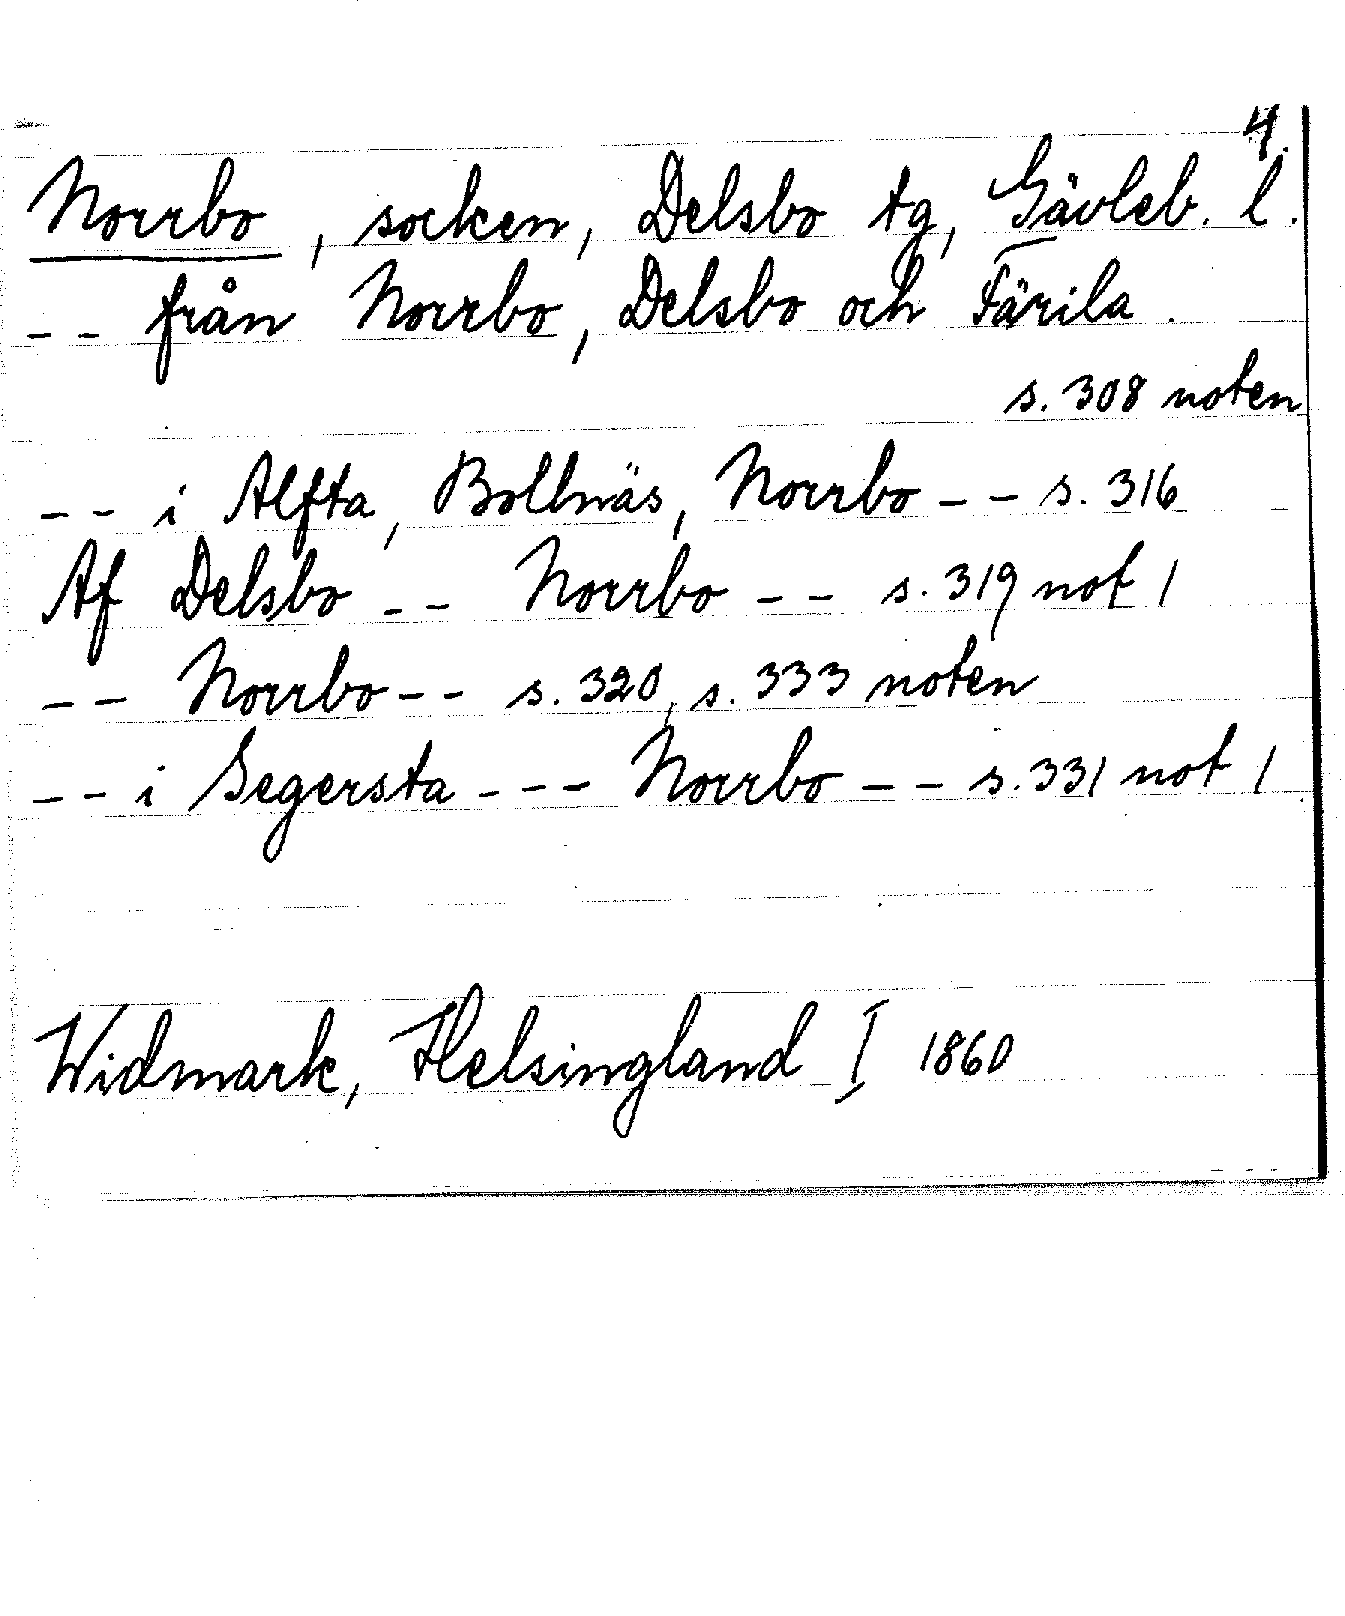 4.
Norrbo, socken, Delsbo tg, Gävleb. l.
-- från Norrbo, Delsbo och Färila.
s. 308 noten
-- i Alfta, Bollnäs, Norrbo -- s. 316
Af Delsbo -- Norrbo -- s. 319 not 1
-- Norrbo -- s. 320, s. 333 noten
-- i Segersta --- Norrbo -- s. 331 not 1
Widmark, Helsingland I 1860